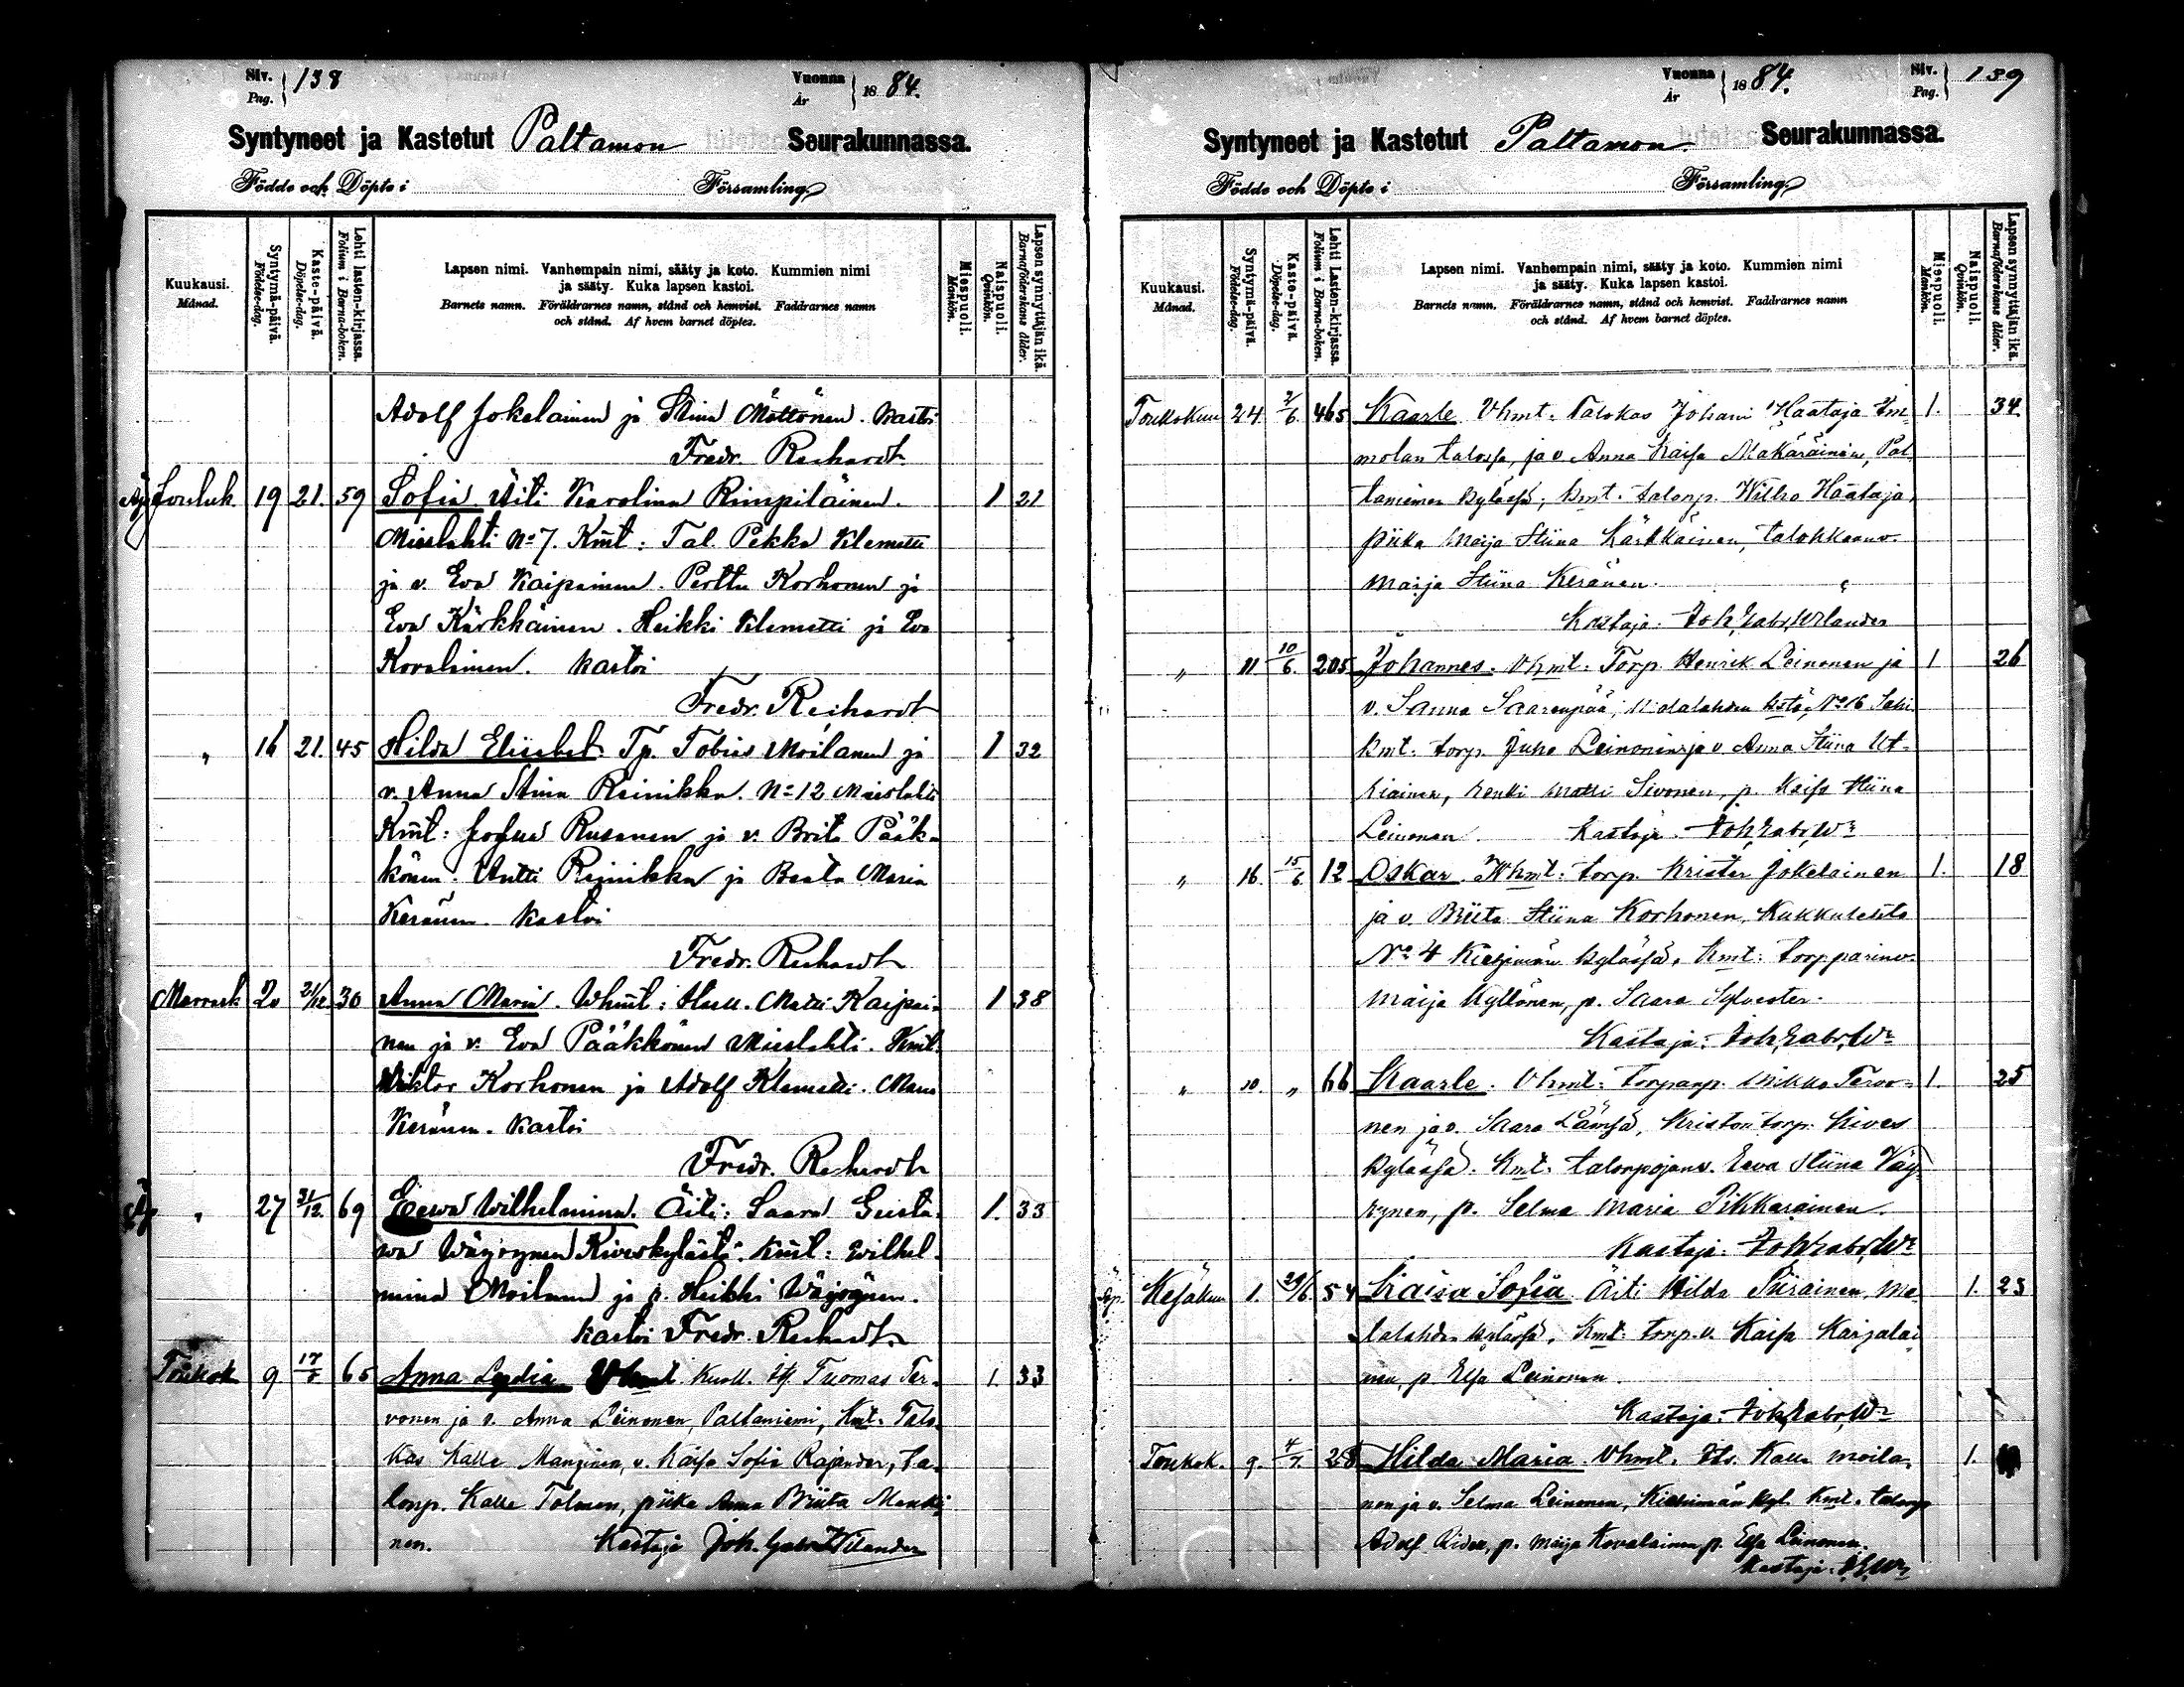 Siv. Pag. 138
Vuonna År 1884.
Syntyneet ja Kastetut Paltamon Seurakunnassa.
Födde och Döpte i Församling
Kuukausi. Månad.
Syntymä-päivä. Födelse-dag.
Kaste-päivä. Döpelse-dag.
Lehti lasten-kirjassa. Folium i Barna-boken.
Lapsen nimi. Vanhempain nimi, sääty ja koto. Kummien nimi
ja sääty. Kuka lapsen kastoi.
Barnets namn. Föräldrarnes namn, stånd och hemvist. Faddrarnes namn
och stånd. Af hvem barnet döptes.
Miespuoli. Mankön.
Naispuoli. Qvinkön.
Lapsen synnyttäjän ikä. Barnaföderskans ålder.
Adolf Jokelainen ja Stina Möttönen. Kastoi
Fredr. Reihardt
Jouluk. 19 21. 59 Sofia Äiti Karolina Rimpiläinen. 1 21
Mieslahti No 7. Kmt: Tal. Pekka Klemetti
ja v. Eva Kaipainen. Perttu Korhonen ja
Eva Kärkkäinen. Heikki Klemetti ja Eva
Kovalainen. Kastoi
Fredr. Reihardt
" 16 21. 45 Hilda Elisabet. Tp. Tobias Moilanen ja 1 32
v. Anna Stina Reinikka. No 12 Mieslahti
Kmt: Rusanen ja v. Brita Pääk-
könen. Antti Reinikka ja Beata Maria
Keränen. Kastoi
Fredr. Reihardt
Marrask 20 21/12. 30 Anna Maria. Vhmt: Matti Kaipai- 1 38
nen ja v. Eva Pääkkönen Mieslahti. Kmt.
Wiktor Korhonen ja Adolf Klemetti. Maria
Keränen. Kastoi
Fredr. Reihardt
" 27 31/12. 69 Eewa Wilhelmina. Äiti: Saara Gusta- 1. 33
wa Wäyrynen Kiveskylästä. Kmt: Wilhel-
mina Moilanen ja r. Heikki Wäyrynen.
Kastoi Fredr. Reihardt
Toukok 9 65 Anna Lydia Vhmt. Kuoll. Tuomas Ter- 1. 33
vonen ja v. Anna Leinonen, Paltaniemi, Kmt. Talo-
kas Kalle Manninen, v. Kaisa Sofia Rajander, ta-
lonp. Kalle Tolonen, piika Anna Briita
nen. Kastaja Joh. Gabr. Wilander
Vuonna År 1884.
Siv. Pag. 139
Syntyneet ja Kastetut Paltamon Seurakunnassa.
Födde och Döpte i Församling
Kuukausi. Månad.
Syntymä-päivä. Födelse-dag.
Kaste-päivä. Döpelse-dag.
Lehti Lasten-kirjassa. Folium i Barna-boken.
Lapsen nimi. Vanhempain nimi, sääty ja koto. Kummien nimi
ja sääty. Kuka lapsen kastoi.
Barnets namn. Föräldrarnes namn, stånd och hemvist. Faddrarnes namn
och stånd. Af hvem barnet döptes.
Miespuoli. Mankön.
Naispuoli. Qvinkön.
Lapsen synnyttäjän ikä. Barnaföderskans ålder.
Toukokuu 24. 2/6. 465 Kaarle Vhmt. Talokas Johani Haataja Im- 1. 34
molan talossa, ja v. Anna Kaisa Makäräinen, Pal-
taniemen kylässä; kmt. talonp. Wilho Haataja,
piika Maija Stiina Kärkkäinen, talokkaanv.
Marja Stiina Keränen.
Kastaja: Joh. Gabr. Wilander
" 11 10/6. 205 Johannes. Vhmt: Torp. Henrik Leinonen ja 1 26
v. Sanna Saarenpää, No 16
Kmt: torp. Juho Leinonen ja v. Anna Stiina Ut-
riainen, renki Matti Sivonen, p. Kaisa Stiina
Leinonen. Kastaja. Joh. Gabr. Wr
" 16. 15/6 12 Oskar. Vhmt: torp. Krister Jokelainen 1. 18
ja v. Briita Stiina Korhonen,
No 4 Kiehimän kylässä, Kmt: torpparinv.
Maija Kyllönen, p. Saara Sylvester.
Kastaja: Joh. Gabr. Wr
" 10. " 66 Kaarle. Vhmt: Torparp. Mikko Tervo- 1. 25
nen ja v. Saara Lämsä, Kriston torp. Kives
kylässä. Kmt. talonpojanv. Eeva Stiina Väy-
rynen, p. Selma Maria Pikkarainen.
Kastaja: Joh. Gabr. Wr
Äp. Kesäkuu 1. 29/6 54 Kaisa Sofia. Äiti Hilda Piirainen, Me- 1. 23
lalahden kylässä, Kmt: torp. v. Kaisa Karjalai-
nen, p. Elsa Leinonen.
Kastaja: Joh. Gabr. Wr
Toukok. 9. 4/7. 28 Hilda Maria. Vhmt. Its. Kalle Moila- 1.
nen ja v. Selma Leinonen, Kiehimän kyl. Kmt. talonp
Adolf p. Maija Kovalainen, p. Elsa Leinonen.
Kastaja: J. G. Wr